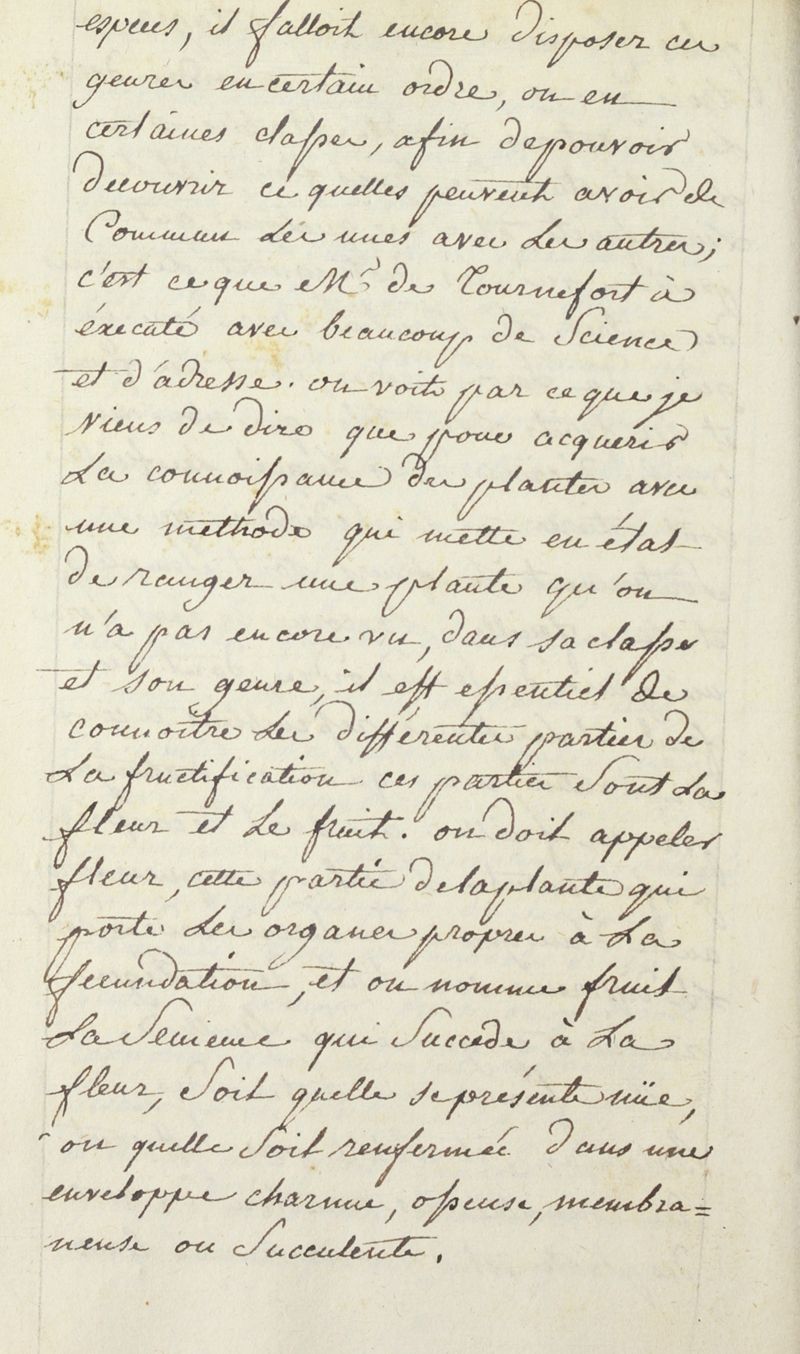 especes, il falloit encore disposer ces
genres en certain ordre, ou en
certaines classes, afin de pouvoir
decouvrir ce quelles peuvent avoir de
Commun Les unes avec Les autres;
c'est ce que Mr. de Tournefort à
éxecuté avec beaucoup de Science
et d'adresse. on voit par ce que je
viens de dire que pour acquerir
La connoissance des plantes avec
une methode qui mette en état
de ranger une plante qu'on
n'a pas encore vu, dans sa classe
et son genre, il est essentiel de
connoître Les différentes parties de
La fructification ces parties Sont La
fleur et Le fruit. on doit appeler
fleur, cette partie de la plante qui
porte Les organes propres à La
fecundation, et on nomme fruit
La Semence qui Succede à La
fleur, Soit quelle se présente nüe,
ou quelle Soit renfermée dans une
enveloppe charnue, osseuse, membra=
neuse ou Succulente.